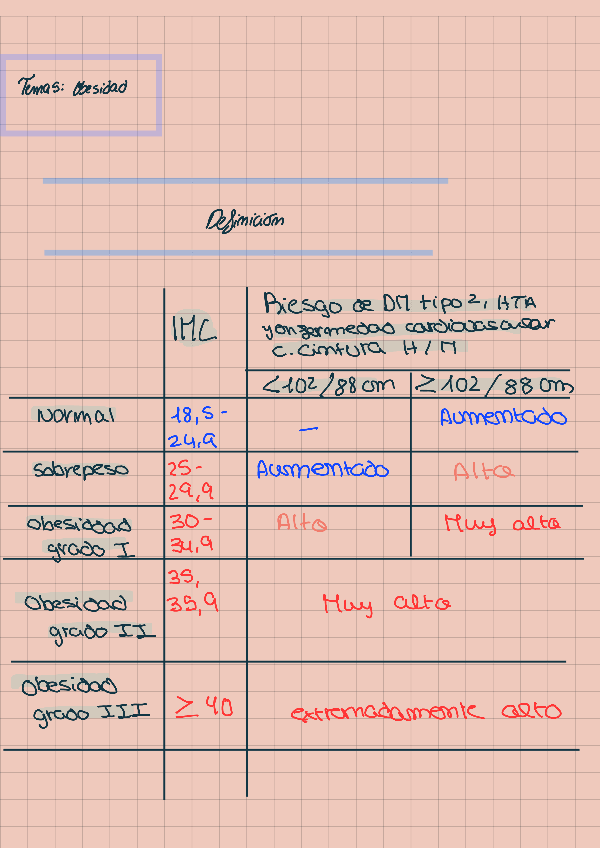 Temas: Obesidad
Definicion
IMC
Riesgo de DM tipo 2, HTA
y enfermedad cardiovascular
c. cintura H/M
<102/88 cm
≥102/88 cm
Normal
18,5-
24,9
—
Aumentado
Sobrepeso
25-
29,9
Aumentado
Alto
Obesidad
grado I
30-
34,9
Alto
Muy alto
Obesidad
grado II
35,
35,9
Muy alto
Obesidad
grado III
≥ 40
extremadamente alto